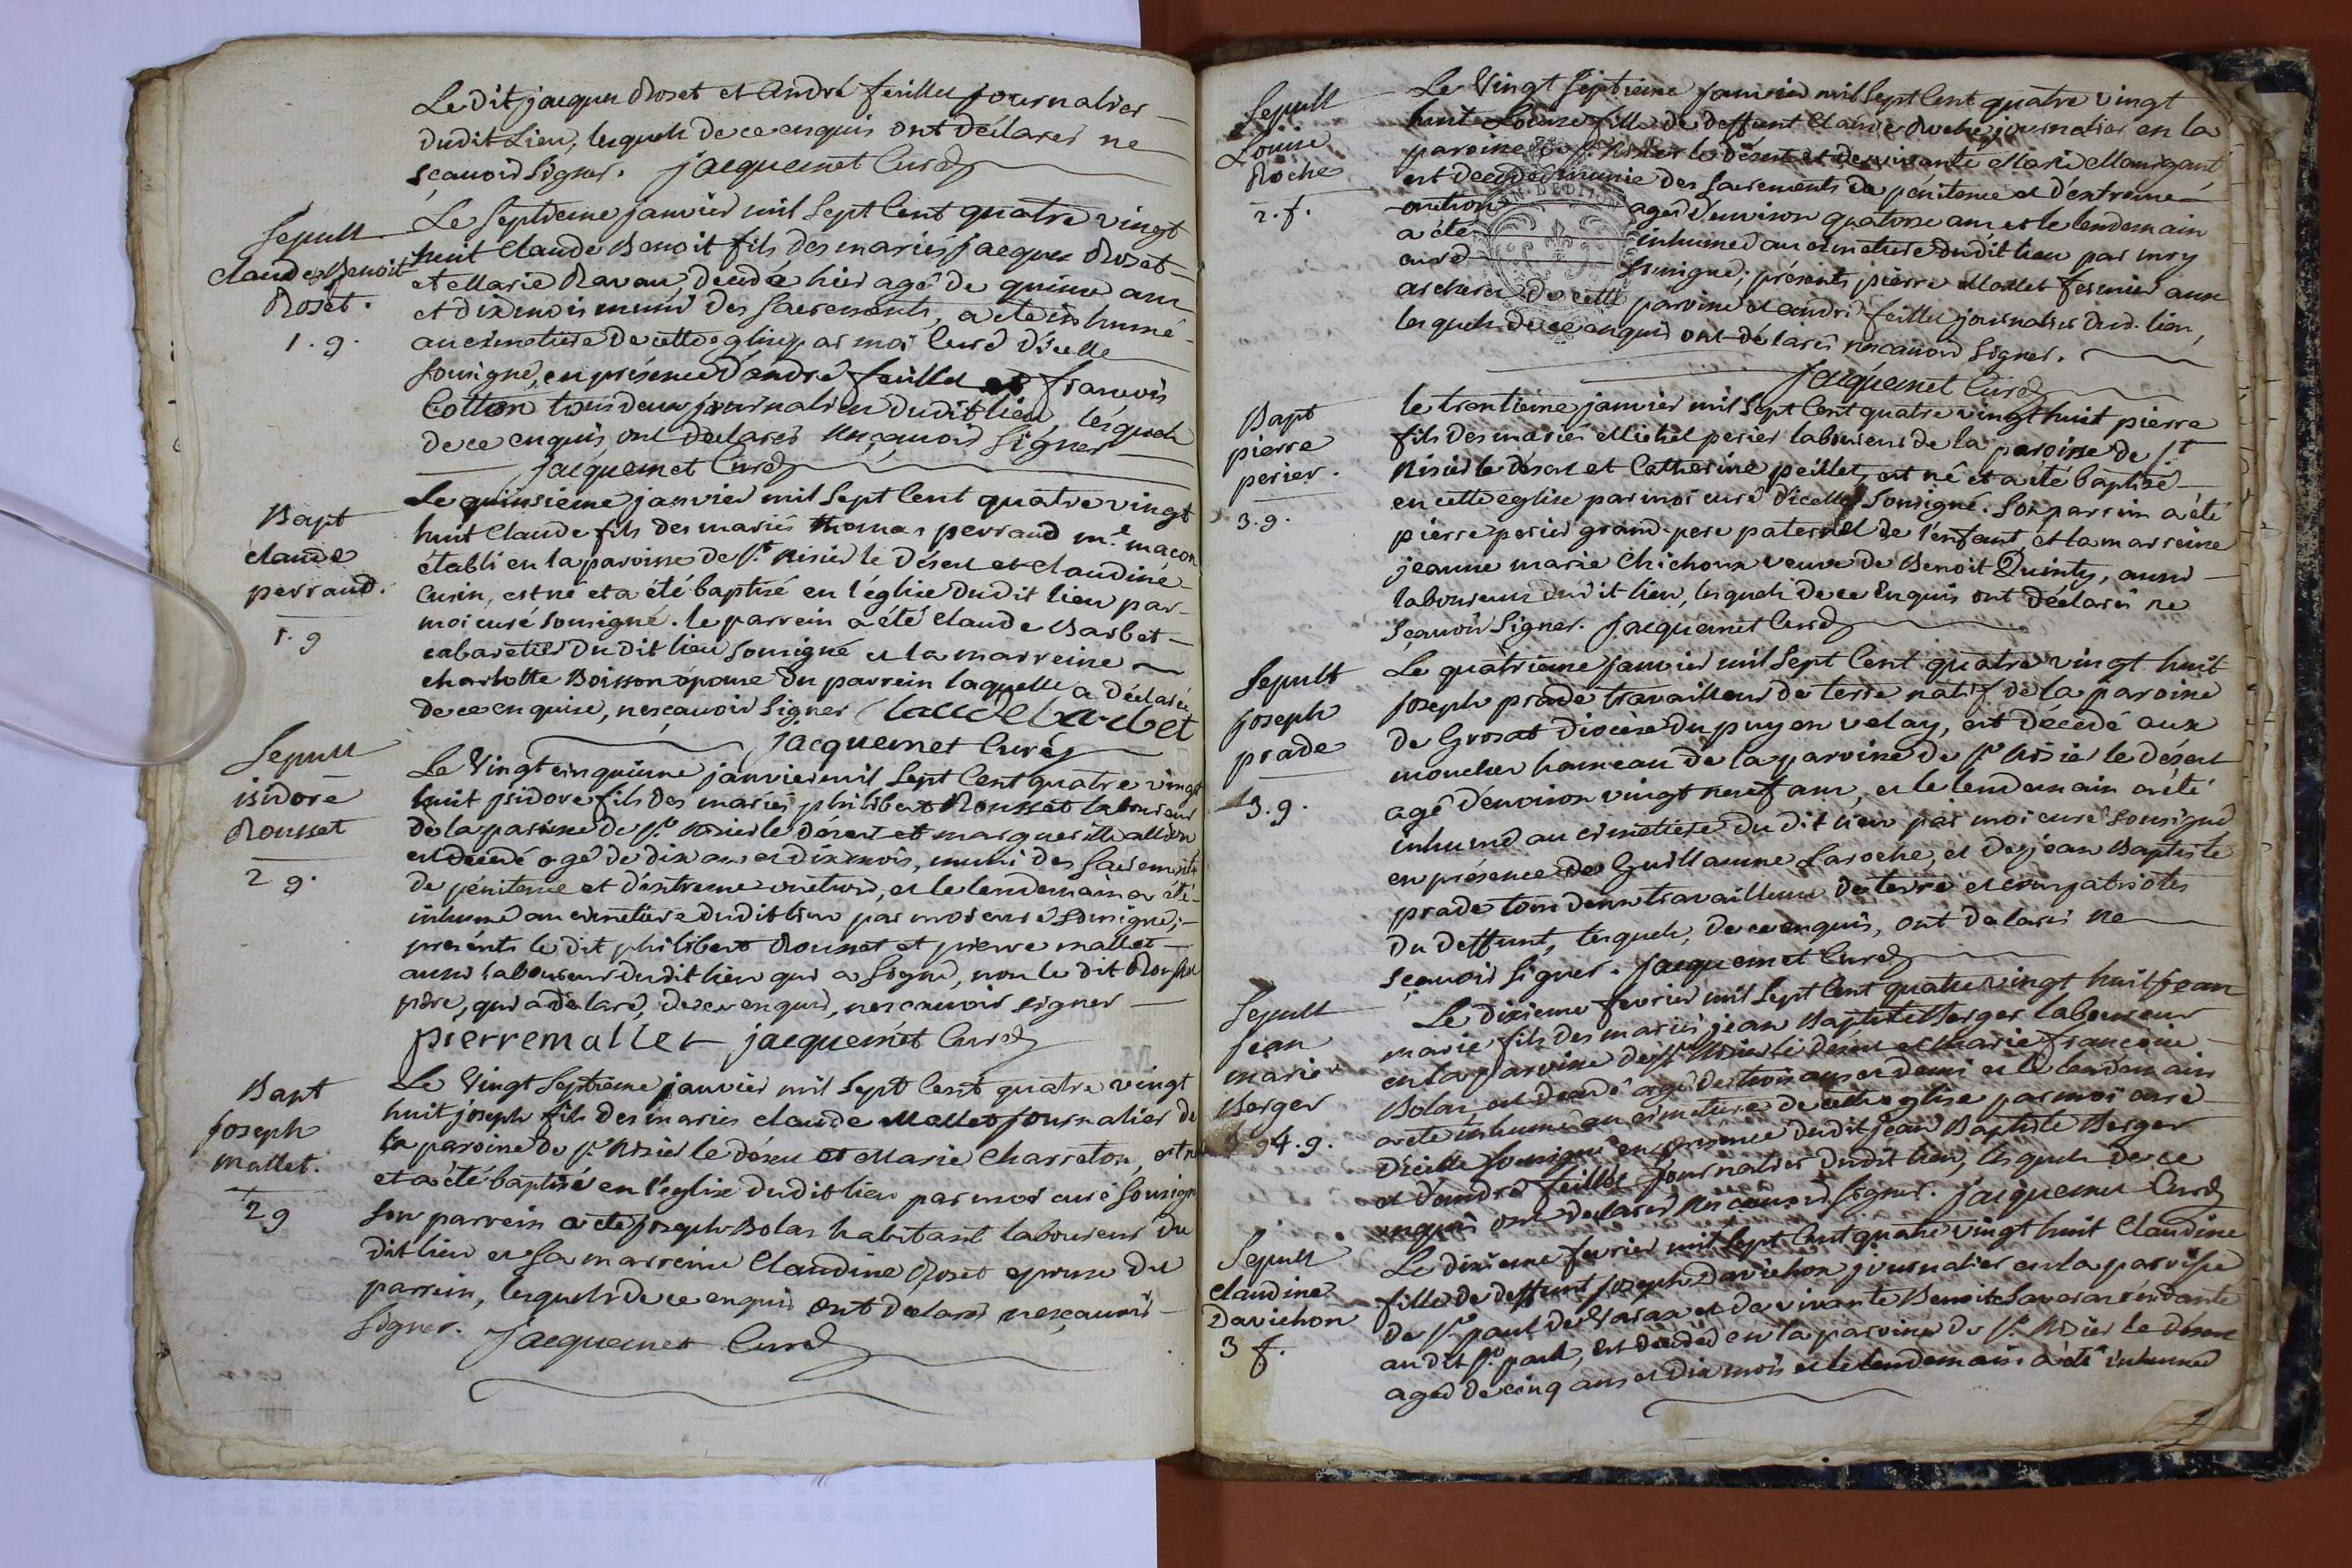 Le dit jacques Roset et andré feuillet journalier
dudit Lieu, lesquels de ce enquis ont déclarés ne
sçavoir signer. jacquemet Curé
Sepult
claude Benoit
Roset.
1. g.
Le septieme janvier mil sept cent quatre vingt
huit Claude Benoit fils des mariés jacques Roset
et Marie Ravau, décédé hier agé de quinze ans
et dix mois muni des sacrements, a été inhumé
au cimetiere de cette eglise par moi curé d'icelle
sousigné, en présence d'andré feuillet et francois
Cotton tous deux journaliers dudit lieu, lesquels
de ce enquis, ont déclarés ne sçavoir signer
jacquemet Curé
Bapt
claude
perraud.
1. g
Le quinsieme janvier mil sept cent quatre vingt
huit Claude fils des mariés thomas perraud m.e macon
établi en la paroisse de St. nisier le désert et claudine
Cusin, est né et a été baptisé en l'église dudit lieu par
moi curé sousigné. le parrein a été claude Barbet
cabaretier dudit lieu sousigné et la marreine
charlotte Boisson épouse du parrein laquelle a déclaré,
de ce enquise, ne sçavoir signer claude barbet
jacquemet Curé
Sepult
isidore
Rousset
2 g.
Le vingt cinquieme janvier mil sept cent quatre vingt
huit jsidore fils des mariés philibert Rousset laboureur
de la paroisse de St. nisier le désert et marguerite allion
est décédé agé de dix ans et dix mois, muni des sacrements
de pénitence et d'extreme onction, et le lendemain a été
inhumé au cimetiere dudit lieu par moi curé sousigné;
presents le dit philibert Rousset et pierre mallet
aussi laboureur dudit lieu qui a signé, non le dit Rousset
pere, qui a déclaré, de ce enquis, ne sçavoir signer
pierre mallet jacquemet Curé
Bapt
joseph
mallet.
2 g
Le vingt septieme janvier mil sept cent quatre vingt
huit joseph fils des mariés claude Mallet journalier de
la paroisse de St. nisier le désert et Marie Charreton, est né
et a été baptisé en l'église dudit lieu par moi curé sousigné
son parrein a été joseph Bolas habitant laboureur du
dit lieu et sa marreine Claudine Roset epouse du
parrein, lesquels de ce enquis ont déclarés ne sçavoir
signer. jacquemet Curé
Sepult
Louise
Roche
2. f.
Le vingt septieme janvier mil sept cent quatre vingt
huit Louise fille de deffunt Claude Roche journalier en la
paroisse de St. nisier le désert et de vivante Marie
est décédée munie des sacrements de pénitence et d'extreme
onction agée d'environ quatorze ans et le lendemain
a été inhumée au cimetiere dudit lieu par moy
curé sousigné; présents pierre Mallet fermier aux
de cette paroisse et andré feuillet journalier dud. lieu,
lesquels de ce enquis ont déclarés ne sçavoir signer.
jacquemet Curé
Bapt
pierre
perier.
3. g.
le trentieme janvier mil sept cent quatre vingt huit pierre
fils des mariés Michel perier laboureur de la paroisse de St
Nisier le désert et Catherine peillet, est né et a été baptisé
en cette eglise par moi curé d'icelle sousigné. Son parrein a été
pierre perier grand-pere paternel de l'enfant et la marreine
jeanne marie Chichoux veuve de Benoit Quinty, aussi
laboureur dudit lieu, lesquels de ce enquis ont déclarés ne
sçavoir signer. jacquemet Curé
Sepult
joseph
prade
3. g.
Le quatrieme janvier mil sept cent quatre vingt huit
joseph prade travailleur de terre natif de la paroisse
de Grosat diocèse du puy en velay, est décédé aux
mouches hameau de la paroisse de St. nisier le désert
agé d'environ vingt neuf ans, et le lendemain a été
inhumé au cimetiere du dit lieu par moi curé sousigné
en présence de Guillaume Laroche, et de jean Baptiste
prade tous deux travailleurs de terre et compatriotes
du deffunt, lesquels, de ce enquis, ont déclarés ne
sçavoir signer. jacquemet Curé
Sepult
jean
marie
Berger
4. g.
Le dixieme fevrier mil sept cent quatre vingt huit jean
marie fils des mariés jean Baptiste Berger laboureur
en la paroisse de St. nisier le désert et Marie francoise
Bolas, est décédé agé de trois ans et demi et le lendemain
a été inhumé au cimetiere de cette eglise par moi curé
d'icelle sousigné en présence dudit jean Baptiste Berger
et d'andré feuillet journalier dudit lieu, lesquels de ce
enquis ont déclarés ne sçavoir signer. jacquemet Curé
Sepult
claudine
Davichon
3 f.
Le dixieme fevrier mil sept cent quatre vingt huit Claudine
fille de deffunt joseph Davichon journalier en la paroisse
de St. paul de Varax et de vivante Benoite résidante
audit St. paul, est décédée en la paroisse de St. nisier le désert
agée de cinq ans et dix mois et le lendemain a été inhumée